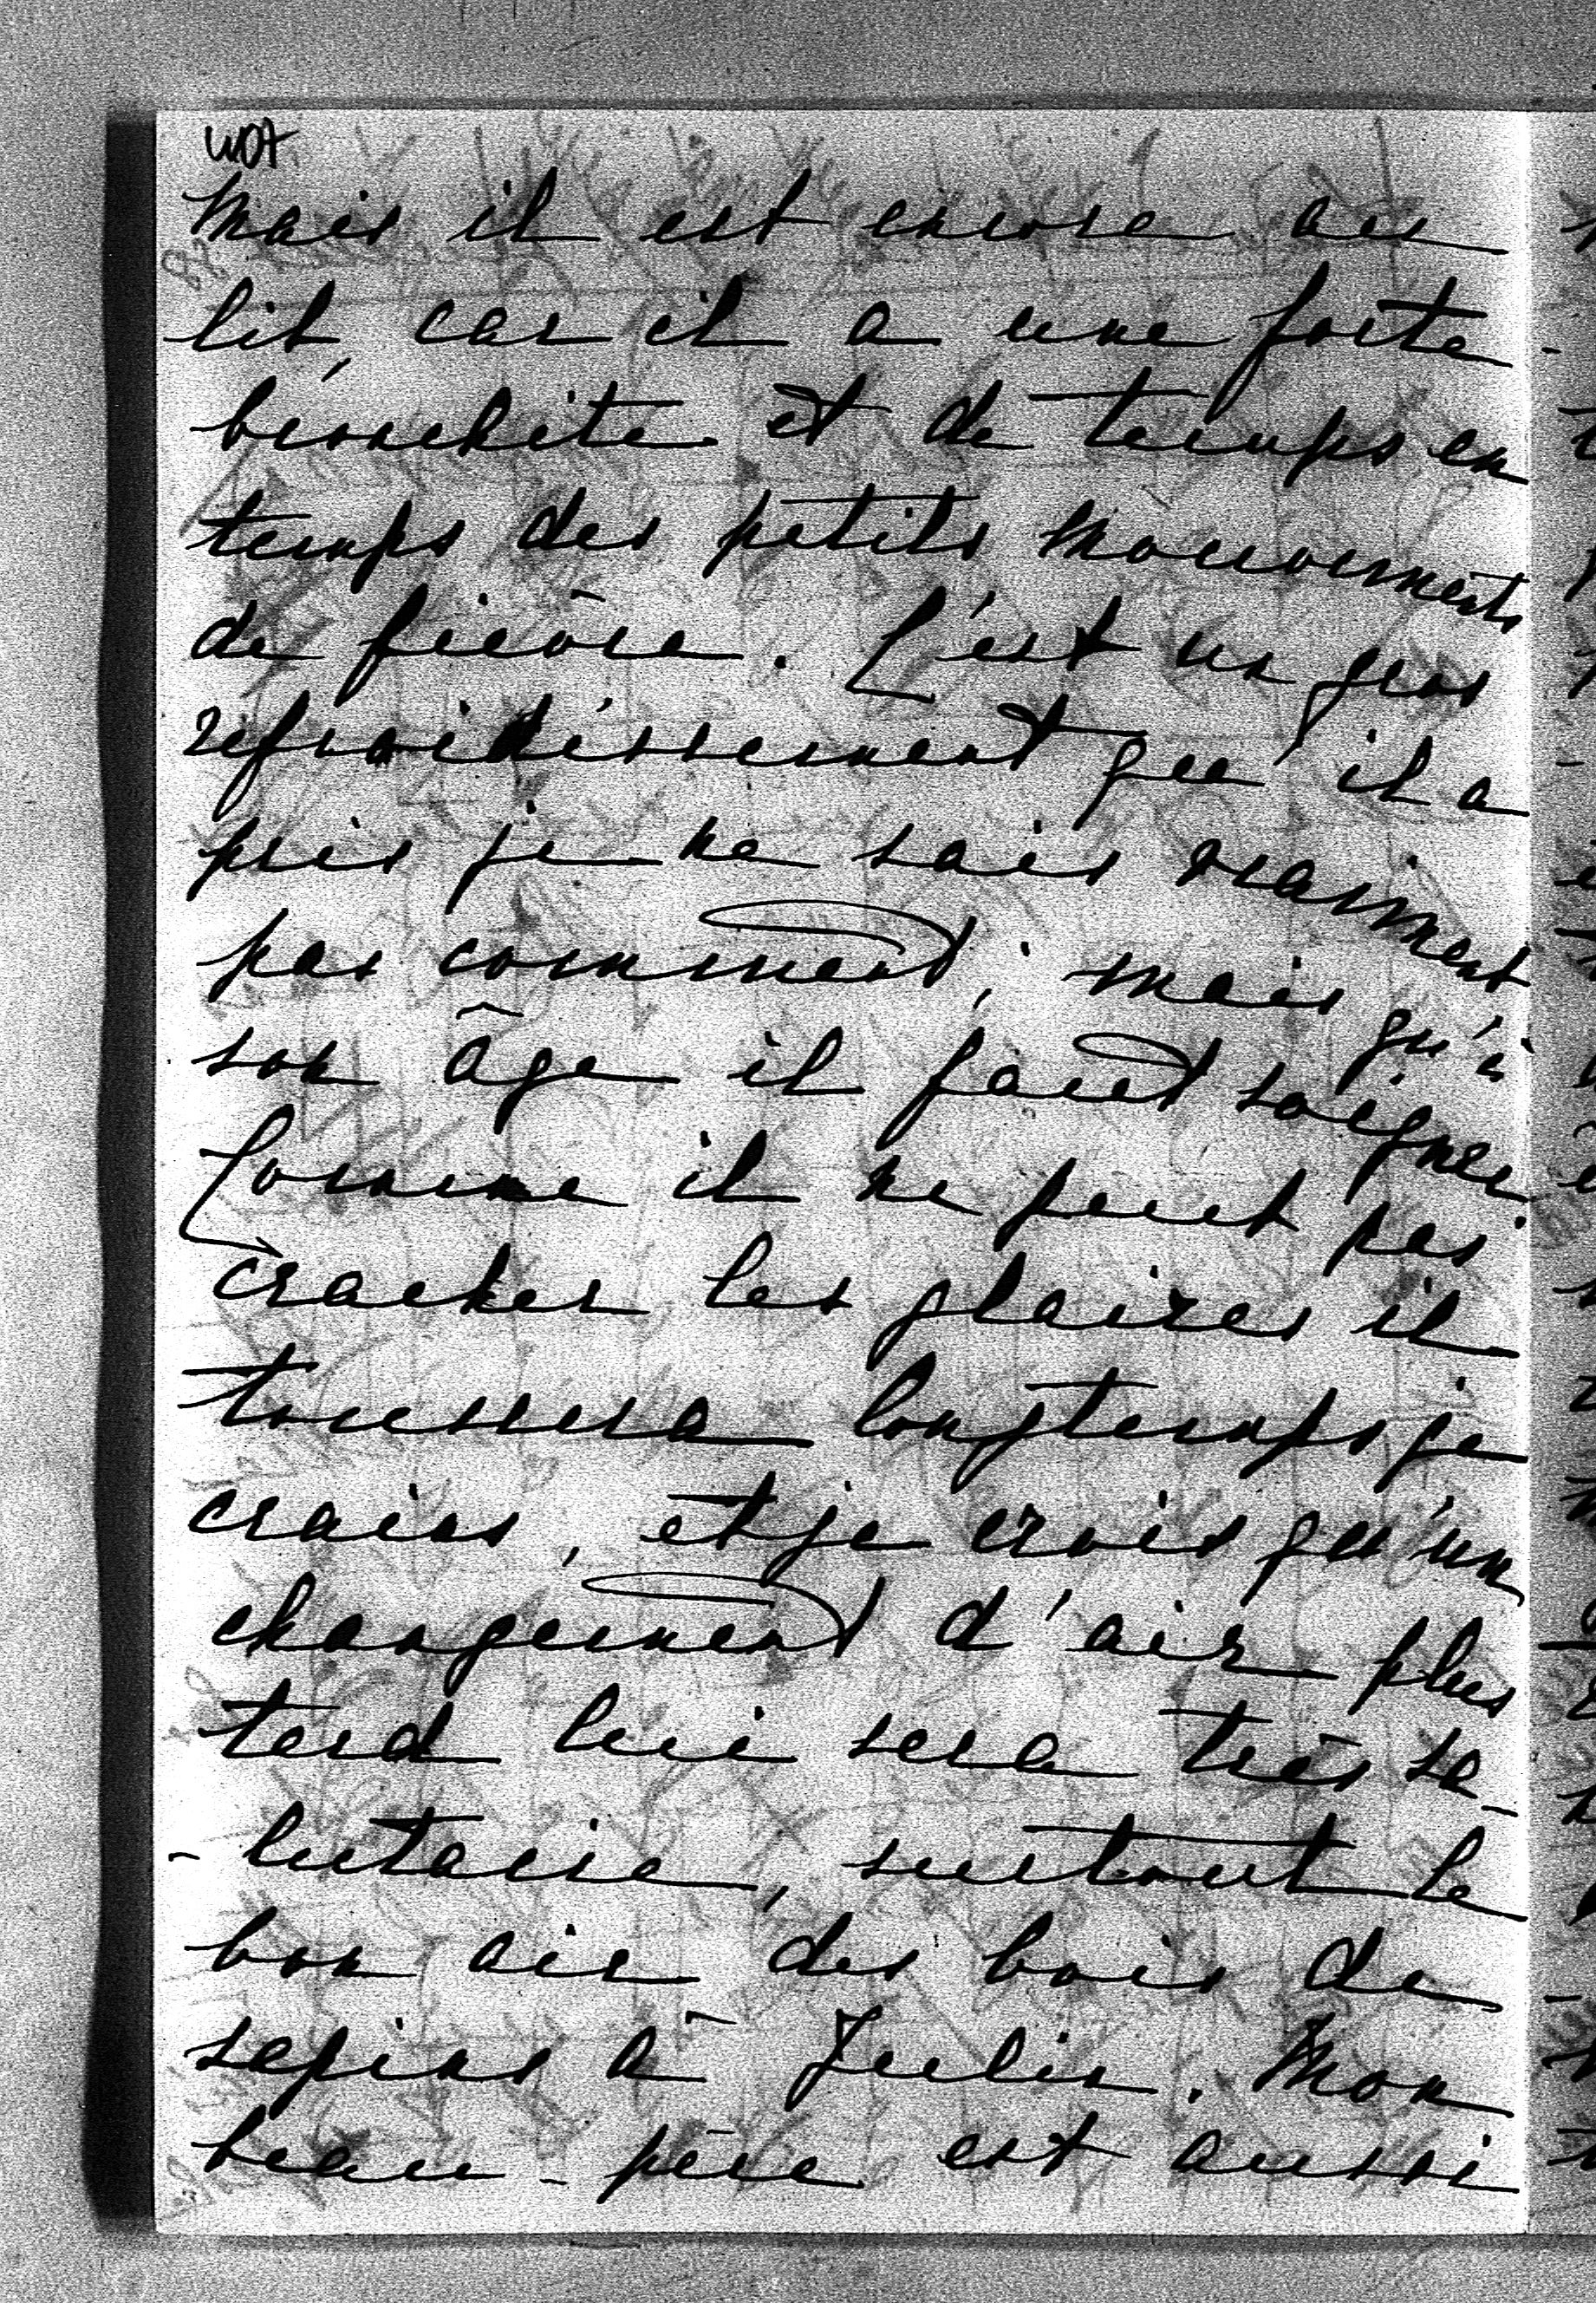 mais il est encore au
lit, car il a une forte
bronchite et de temps en
temps des petits mouvements
de fièvre. C'est un gros
refroidissement qu'il a
pris je ne sais vraiment
pas comment, mais qu'à
son âge il faut soigner.
Comme il ne peut pas
cracher les glaires il
toussera longtemps je
crains, et je crois qu'un
changement d'air plus
tard lui sera très sa-
-lutaire, surtout le
bon air des bois de
sapins à Julin. Mon
beau-père est aussi